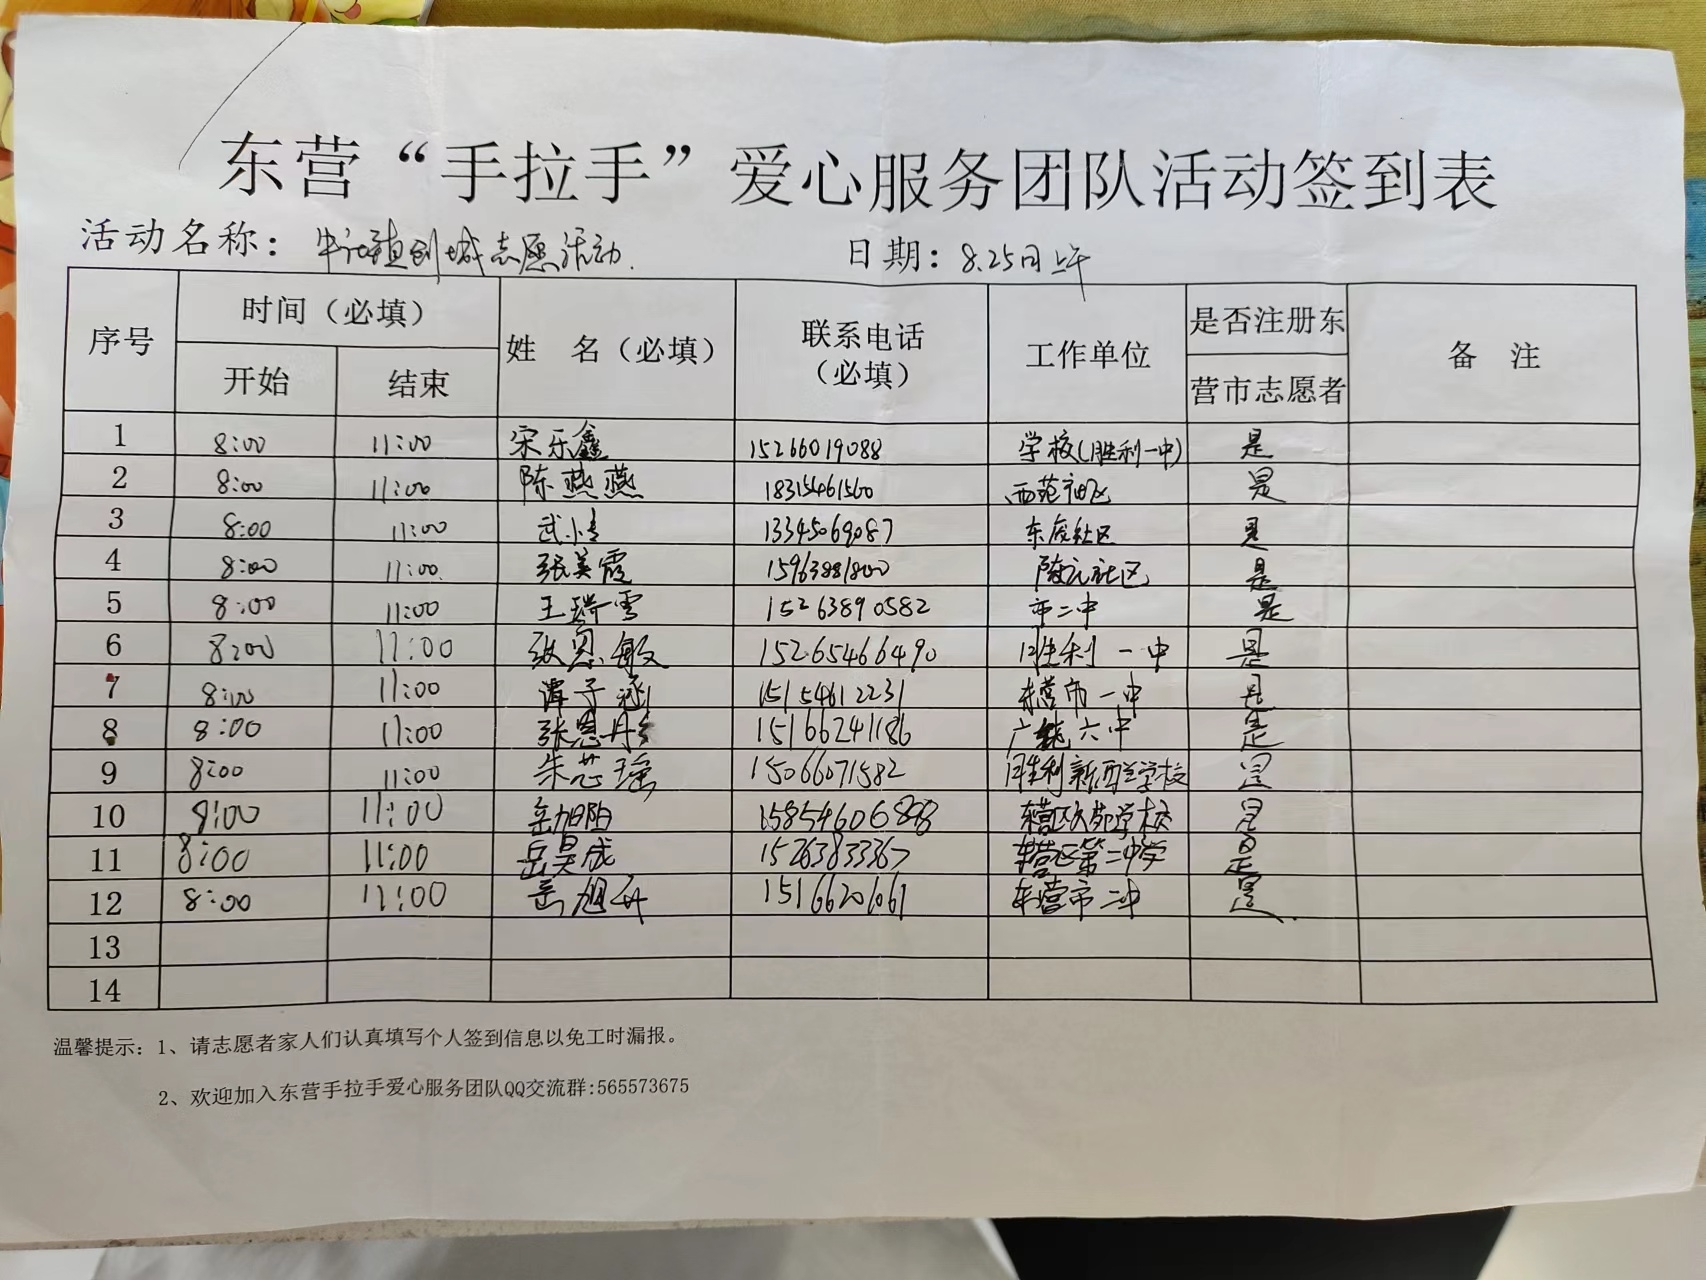 东营“手拉手”爱心服务团队活动签到表
活动名称： 志愿活动. 日期：8.25日上午
序号 时间（必填） 姓 名（必填） 联系电话（必填） 工作单位 是否注册东营市志愿者 备 注
开始 结束
1 8:00 11:00 宋乐鑫 15266019088 学校(胜利一中) 是
2 8:00 11:00 陈燕燕 18315461560 西苑社区 是
3 8:00 11:00 武小 13345069087 社区 是
4 8:00 11:00 张美霞 15963881800 社区 是
5 8:00 11:00 王瑞雪 15263890582 市二中 是
6 8:00 11:00 张恩敏 15265466490 胜利一中 是
7 8:00 11:00 谭子 15154612231 东营市一中 是
8 8:00 11:00 张恩丹 15166241186 广饶六中 是
9 8:00 11:00 朱芯瑶 15066071582 胜利新西兰学校 是
10 8:00 11:00 岳旭阳 15854606898 东营区文苑学校 是
11 8:00 11:00 岳昊成 1526383367 东营区第二中学 是
12 8:00 11:00 岳旭 1516620661 东营市二中 是
13
14
温馨提示：1、请志愿者家人们认真填写个人签到信息以免工时漏报。
2、欢迎加入东营手拉手爱心服务团队QQ交流群:565573675